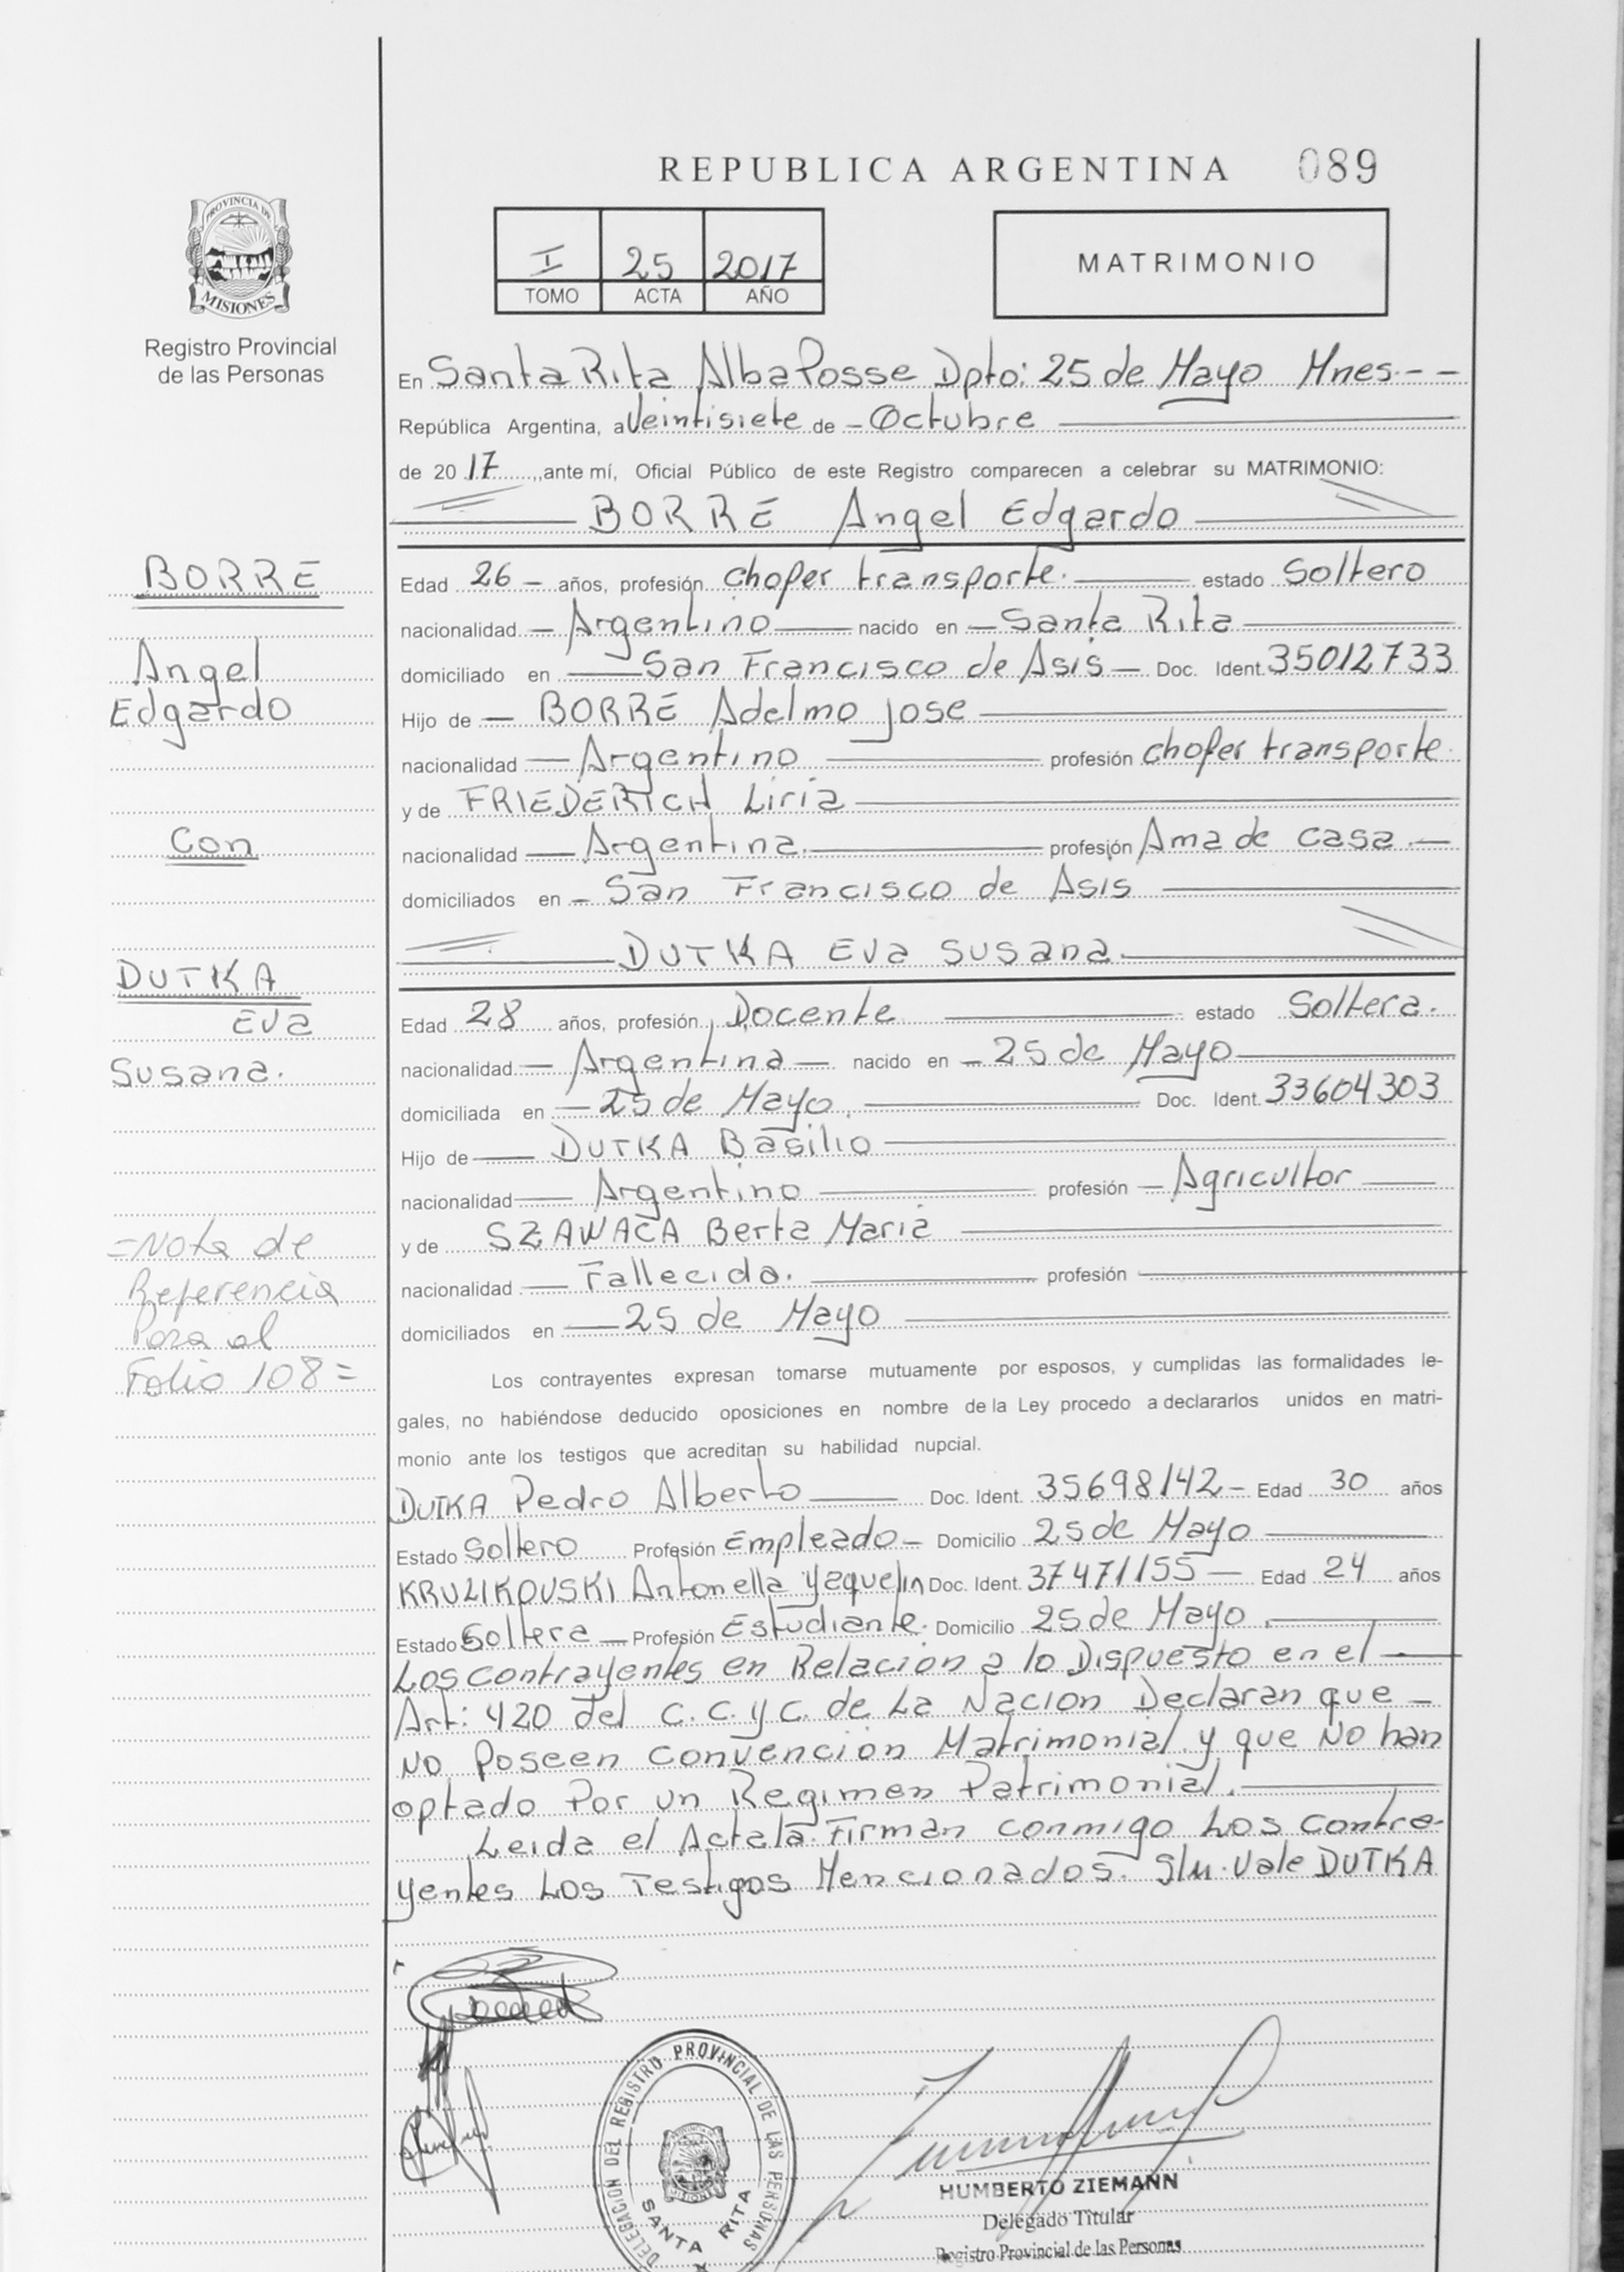 REPUBLICA ARGENTINA 089
PROVINCIA DE
MISIONES
Registro Provincial
de las Personas
I 25 2017
TOMO ACTA AÑO
MATRIMONIO
En Santa Rita Alba Posse Dpto: 25 de Mayo Mnes.--
República Argentina, a Veintisiete de - Octubre
de 2017, ante mí, Oficial Público de este Registro comparecen a celebrar su MATRIMONIO:
BORRE Angel Edgardo
BORRE
Angel
Edgardo
Con
DUTKA
Eva
Susana.
=Nota de
Referencia
Pasa al
Folio 108=
Edad 26 - años, profesión chofer transporte. estado Soltero
nacionalidad - Argentino nacido en - Santa Rita
domiciliado en San Francisco de Asis - Doc. Ident. 35012733
Hijo de - BORRE Adelmo Jose
nacionalidad - Argentino profesión chofer transporte.
y de FRIEDERICH Liria
nacionalidad - Argentina. profesión Ama de casa.-
domiciliados en - San Francisco de Asis
DUTKA Eva Susana.
Edad 28 años, profesión Docente estado Soltera.
nacionalidad - Argentina - nacido en - 25 de Mayo
domiciliada en - 25 de Mayo. Doc. Ident. 33604303
Hijo de - DUTKA Basilio
nacionalidad - Argentino profesión - Agricultor
y de SZAWACA Berta Maria
nacionalidad - Fallecida. profesión -
domiciliados en - 25 de Mayo
Los contrayentes expresan tomarse mutuamente por esposos, y cumplidas las formalidades le-
gales, no habiéndose deducido oposiciones en nombre de la Ley procedo a declararlos unidos en matri-
monio ante los testigos que acreditan su habilidad nupcial.
DUTKA Pedro Alberto Doc. Ident. 35698142 - Edad 30 años
Estado Soltero Profesión Empleado - Domicilio 25 de Mayo
KRULIKOVSKI Antonella Yaquelin Doc. Ident. 37471155 - Edad 24 años
Estado Soltera - Profesión Estudiante. Domicilio 25 de Mayo.
Los contrayentes en Relacion a lo Dispuesto en el
Art: 420 del C.C.yC. de La Nacion Declaran que -
No Poseen convencion Matrimonial y que No han
optado Por un Regimen Patrimonial.
Leida el Acta la Firman conmigo Los Contra-
yentes Los Testigos Mencionados. S/M. Vale DUTKA
DELEGACION DEL REGISTRO PROVINCIAL DE LAS PERSONAS
SANTA RITA
HUMBERTO ZIEMANN
Delegado Titular
Registro Provincial de las Personas